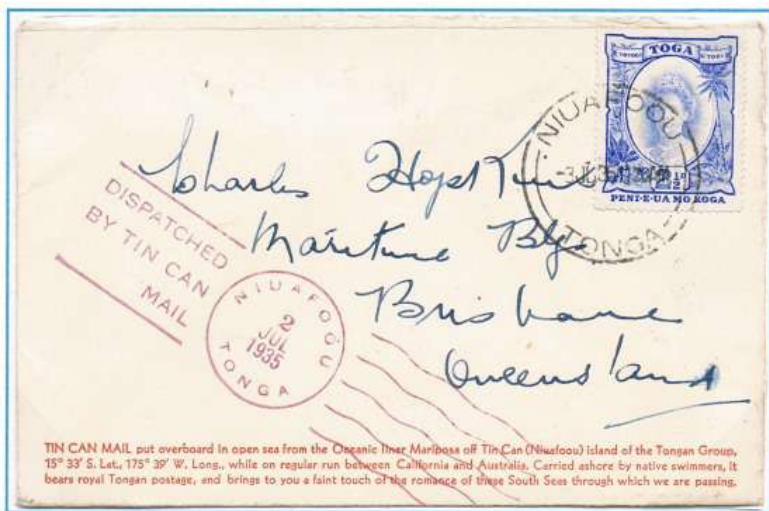 TOGA
½D
PENI·E·UA MO E KOGA
NIUAFOOU
-3JL35
TONGA
Charles Hopkins
Maritime Bldg
Brisbane
Queensland
DISPATCHED
BY TIN CAN
MAIL
NIUAFOOU
2
JUL
1935
TONGA
TIN CAN MAIL put overboard in open sea from the Oceanic liner Mariposa off Tin Can (Niuafoou) island of the Tongan Group,
15° 33' S. Lat., 175° 39' W. Long., while on regular run between California and Australia. Carried ashore by native swimmers, it
bears royal Tongan postage, and brings to you a faint touch of the romance of these South Seas through which we are passing.